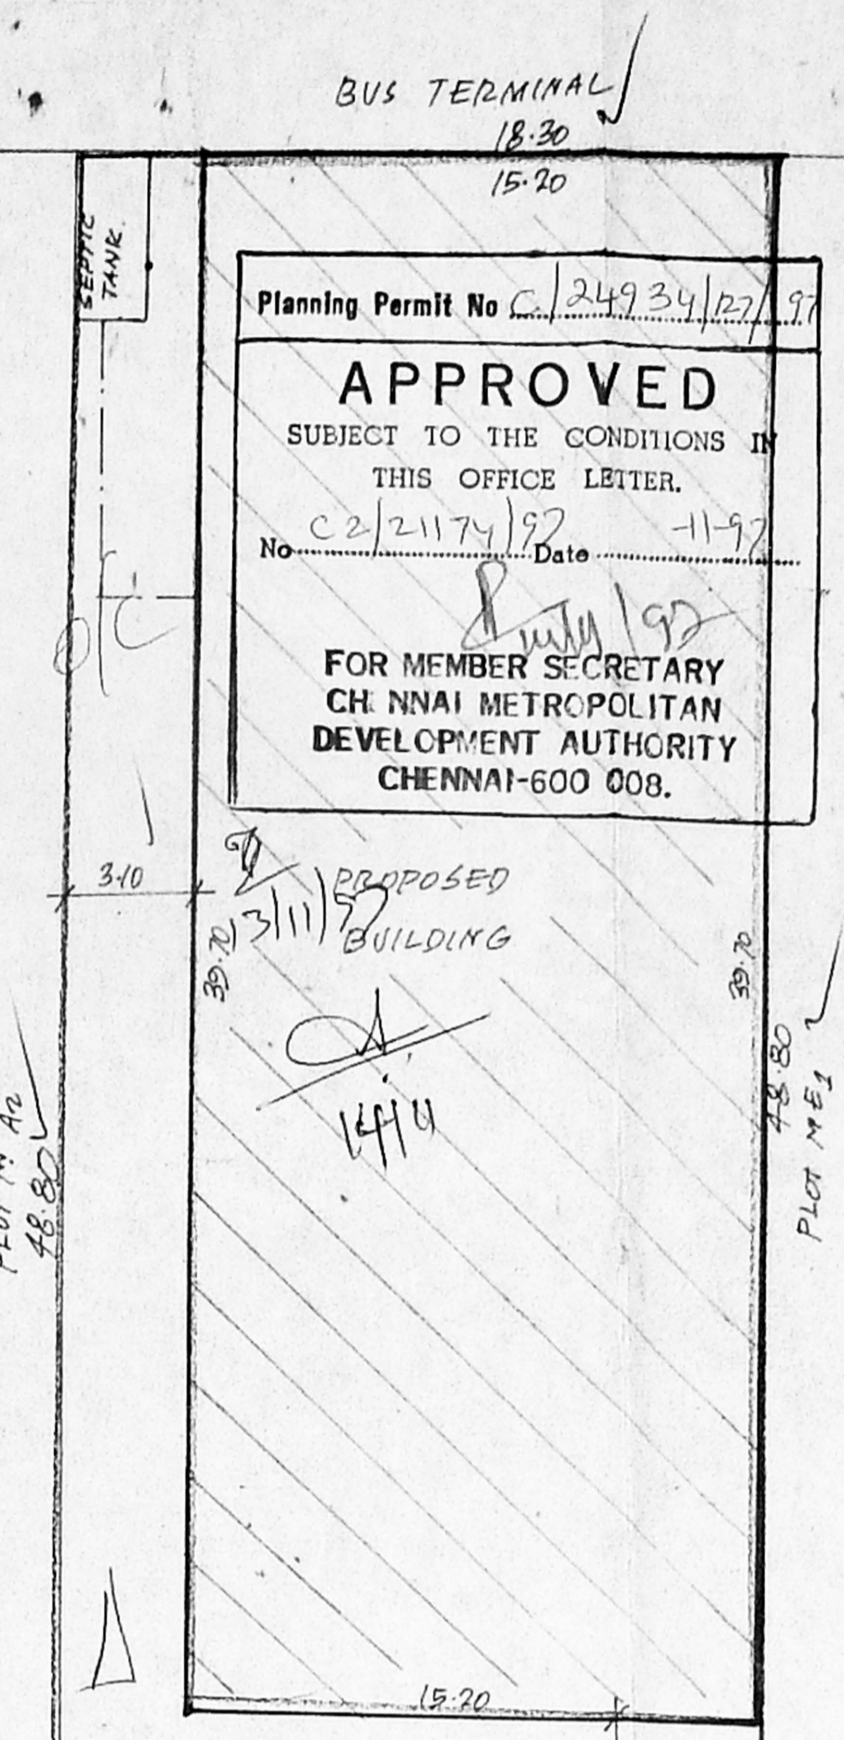 BUS TERMINAL
18.30
15.20
SEPTIC
TANK.
Planning Permit No C./24934/127/97
APPROVED
SUBJECT TO THE CONDITIONS IN
THIS OFFICE LETTER.
No C2/21174/97 Date -11-97
FOR MEMBER SECRETARY
CH NNAI METROPOLITAN
DEVELOPMENT AUTHORITY
CHENNAI-600 008.
3.10
PROPOSED
13/11/97
BUILDING
39.70
39.70
14/11
48.80
48.80
PLOT
15.20